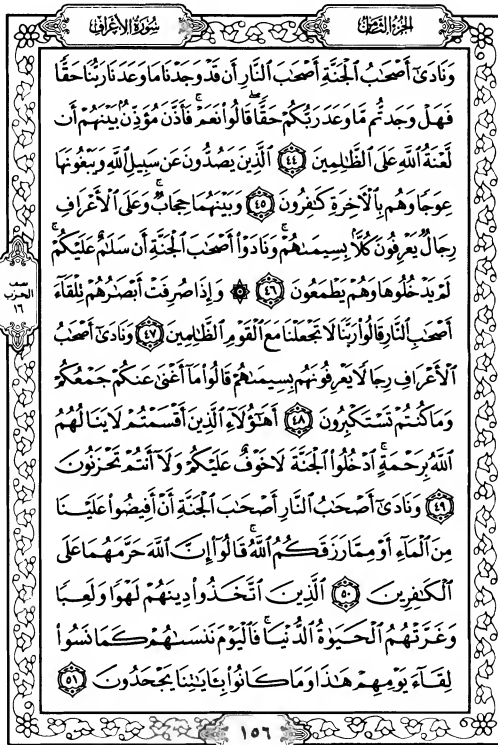 الجُزْءُ الثَّامِنُ
سُورَةُ الأَعْرَافِ
وَنَادَىٰٓ أَصۡحَٰبُ ٱلۡجَنَّةِ أَصۡحَٰبَ ٱلنَّارِ أَن قَدۡ وَجَدۡنَا مَا وَعَدَنَا رَبُّنَا حَقّٗا
فَهَلۡ وَجَدتُّم مَّا وَعَدَ رَبُّكُمۡ حَقّٗاۖ قَالُواْ نَعَمۡۚ فَأَذَّنَ مُؤَذِّنُۢ بَيۡنَهُمۡ أَن
لَّعۡنَةُ ٱللَّهِ عَلَى ٱلظَّٰلِمِينَ ٤٤ ٱلَّذِينَ يَصُدُّونَ عَن سَبِيلِ ٱللَّهِ وَيَبۡغُونَهَا
عِوَجٗا وَهُم بِٱلۡأٓخِرَةِ كَٰفِرُونَ ٤٥ وَبَيۡنَهُمَا حِجَابٞۚ وَعَلَى ٱلۡأَعۡرَافِ
رِجَالٞ يَعۡرِفُونَ كُلَّۢا بِسِيمَىٰهُمۡۚ وَنَادَوۡاْ أَصۡحَٰبَ ٱلۡجَنَّةِ أَن سَلَٰمٌ عَلَيۡكُمۡۚ
لَمۡ يَدۡخُلُوهَا وَهُمۡ يَطۡمَعُونَ ٤٦ ۞ وَإِذَا صُرِفَتۡ أَبۡصَٰرُهُمۡ تِلۡقَآءَ
نصف
الحزب
١٦
أَصۡحَٰبِ ٱلنَّارِ قَالُواْ رَبَّنَا لَا تَجۡعَلۡنَا مَعَ ٱلۡقَوۡمِ ٱلظَّٰلِمِينَ ٤٧ وَنَادَىٰٓ أَصۡحَٰبُ
ٱلۡأَعۡرَافِ رِجَالٗا يَعۡرِفُونَهُم بِسِيمَىٰهُمۡ قَالُواْ مَآ أَغۡنَىٰ عَنكُمۡ جَمۡعُكُمۡ
وَمَا كُنتُمۡ تَسۡتَكۡبِرُونَ ٤٨ أَهَٰٓؤُلَآءِ ٱلَّذِينَ أَقۡسَمۡتُمۡ لَا يَنَالُهُمُ
ٱللَّهُ بِرَحۡمَةٍۚ ٱدۡخُلُواْ ٱلۡجَنَّةَ لَا خَوۡفٌ عَلَيۡكُمۡ وَلَآ أَنتُمۡ تَحۡزَنُونَ
٤٩ وَنَادَىٰٓ أَصۡحَٰبُ ٱلنَّارِ أَصۡحَٰبَ ٱلۡجَنَّةِ أَنۡ أَفِيضُواْ عَلَيۡنَا
مِنَ ٱلۡمَآءِ أَوۡ مِمَّا رَزَقَكُمُ ٱللَّهُۚ قَالُوٓاْ إِنَّ ٱللَّهَ حَرَّمَهُمَا عَلَى
ٱلۡكَٰفِرِينَ ٥٠ ٱلَّذِينَ ٱتَّخَذُواْ دِينَهُمۡ لَهۡوٗا وَلَعِبٗا
وَغَرَّتۡهُمُ ٱلۡحَيَوٰةُ ٱلدُّنۡيَاۚ فَٱلۡيَوۡمَ نَنسَىٰهُمۡ كَمَا نَسُواْ
لِقَآءَ يَوۡمِهِمۡ هَٰذَا وَمَا كَانُواْ بِـَٔايَٰتِنَا يَجۡحَدُونَ ٥١
١٥٦